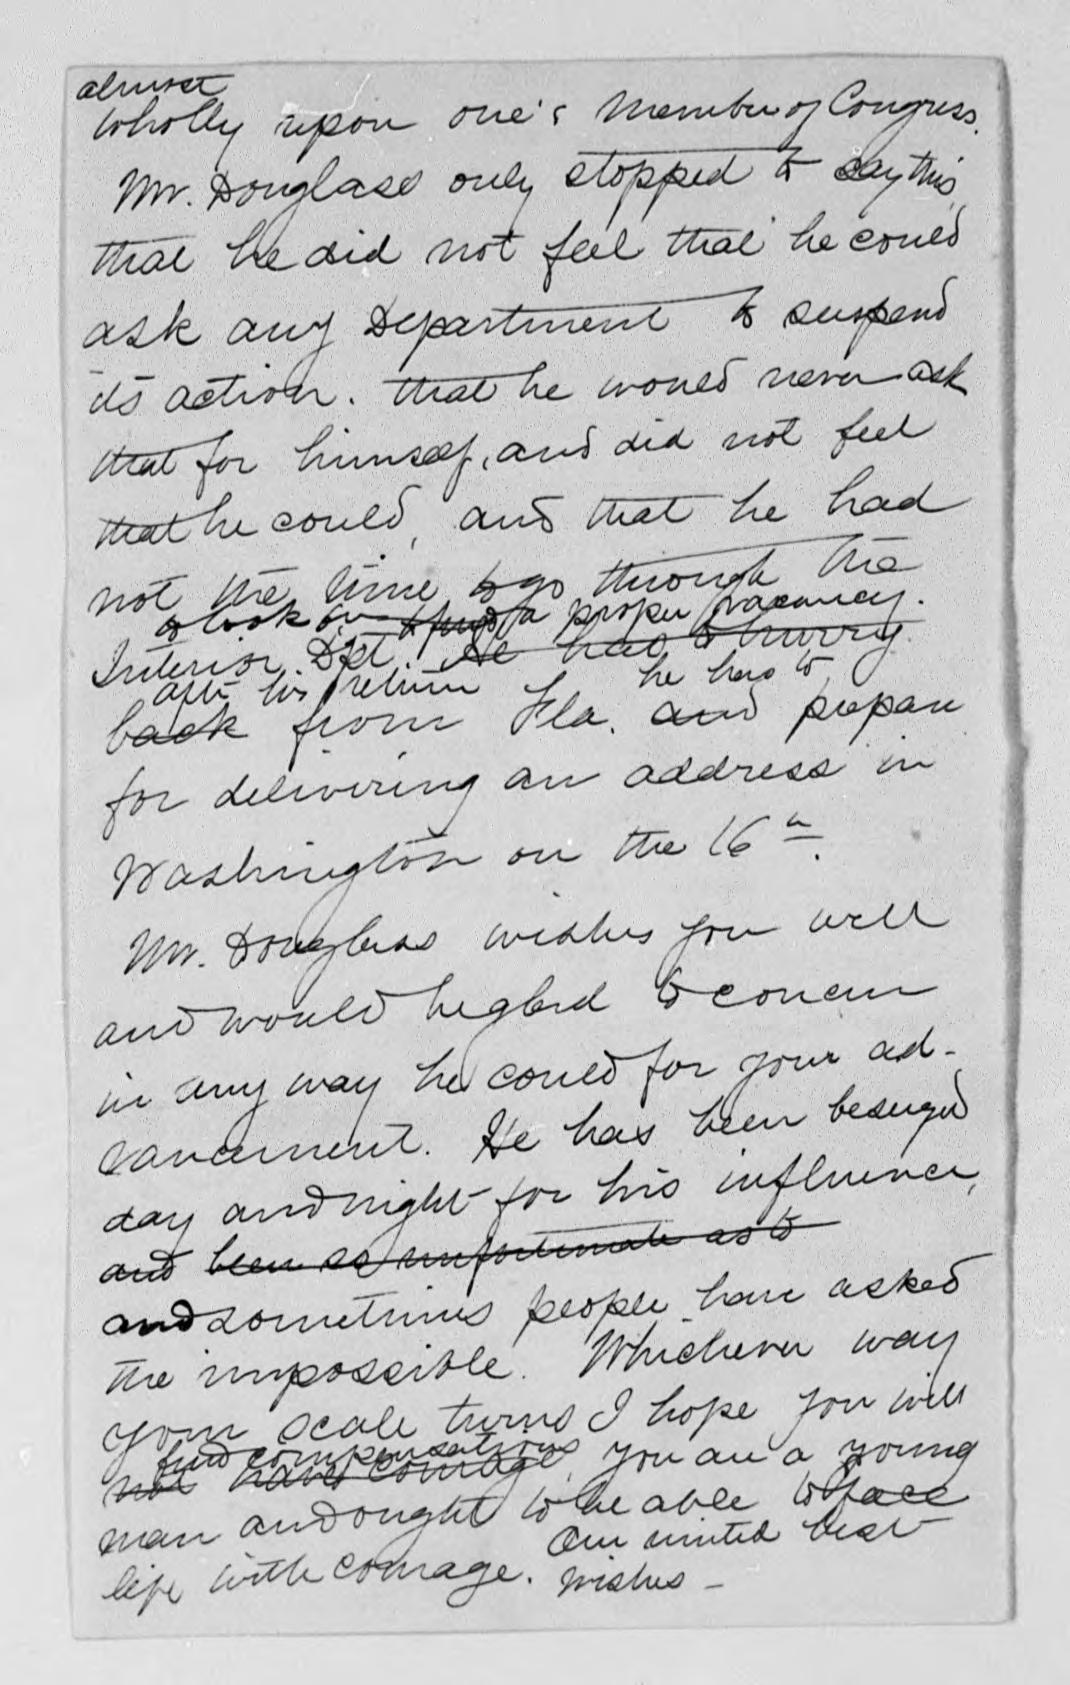 almost
wholly upon one's Member of Congress.
Mr. Douglass only stopped to say this,
that he did not feel that he could
ask any Department to suspend
its action. that he would never ask
that for himself, and did not feel
that he could, and that he had
not the time to go through the
to look or find a proper vacancy.
Interior Dpt. He has to hurry
after his return he has to
back from Fla. and prepare
for delivering an address in
Washington on the 16th.
Mr. Douglass wishes you well
and would be glad to concur
in any way he could for your ad-
vancement. He has been besieged
day and night for his influence,
and been so unfortunate as to
and sometimes people have asked
the impossible. Whichever way
your scale turns I hope you will
find compensations
not have courage. you are a young
man and ought to be able to face
life with courage. Our united best
wishes -